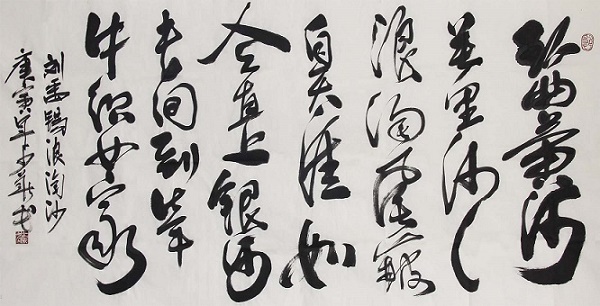 九曲黄河
万里沙
浪淘风簸
自天涯如
今直上银河
去同到牵
牛织女家
刘禹锡浪淘沙
庚寅年书